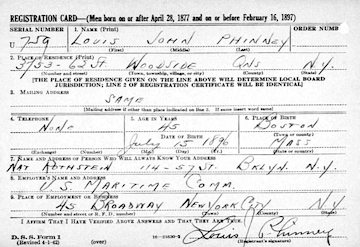 REGISTRATION CARD—(Men born on or after April 28, 1877 and on or before February 16, 1897)
SERIAL NUMBER 1. NAME (Print) ORDER NUMB
U 759 LOUIS JOHN PHINNEY
(First) (Middle) (Last)
2. PLACE OF RESIDENCE (Print)
53-62 ST WOODSIDE QNS N.Y.
(Number and street) (Town, township, village, or city) (County) (State)
[THE PLACE OF RESIDENCE GIVEN ON THE LINE ABOVE WILL DETERMINE LOCAL BOARD
JURISDICTION; LINE 2 OF REGISTRATION CERTIFICATE WILL BE IDENTICAL]
3. MAILING ADDRESS
SAME
[Mailing address if other than place indicated on line 2. If same insert word same]
4. TELEPHONE 5. AGE IN YEARS 6. PLACE OF BIRTH
NONE 45 BOSTON
DATE OF BIRTH (Town or county)
July 15 1896 MASS
(Exchange) (Number) (Mo.) (Day) (Yr.) (State or country)
7. NAME AND ADDRESS OF PERSON WHO WILL ALWAYS KNOW YOUR ADDRESS
NAT ROTHSTEIN 114-57 ST BKLYN. N.Y.
8. EMPLOYER'S NAME AND ADDRESS
U.S. MARITIME COMM.
9. PLACE OF EMPLOYMENT OR BUSINESS
45 BROADWAY NEW YORK CITY N.Y.
(Number and street or R. F. D. number) (Town) (County) (State)
I AFFIRM THAT I HAVE VERIFIED ABOVE ANSWERS AND THAT THEY ARE TRUE.
D. S. S. Form 1
(Revised 4-1-42) (over) Louis J. Phinney
(Registrant's signature)